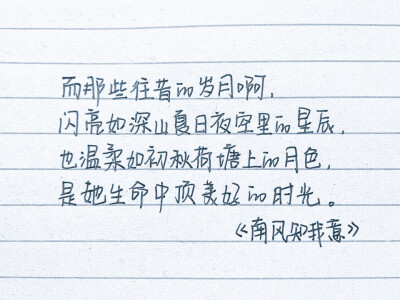 而那些往昔的岁月啊，
闪亮如深山夏日夜空里的星辰，
也温柔如初秋荷塘上的月色，
是她生命中顶美好的时光。
《南风知我意》